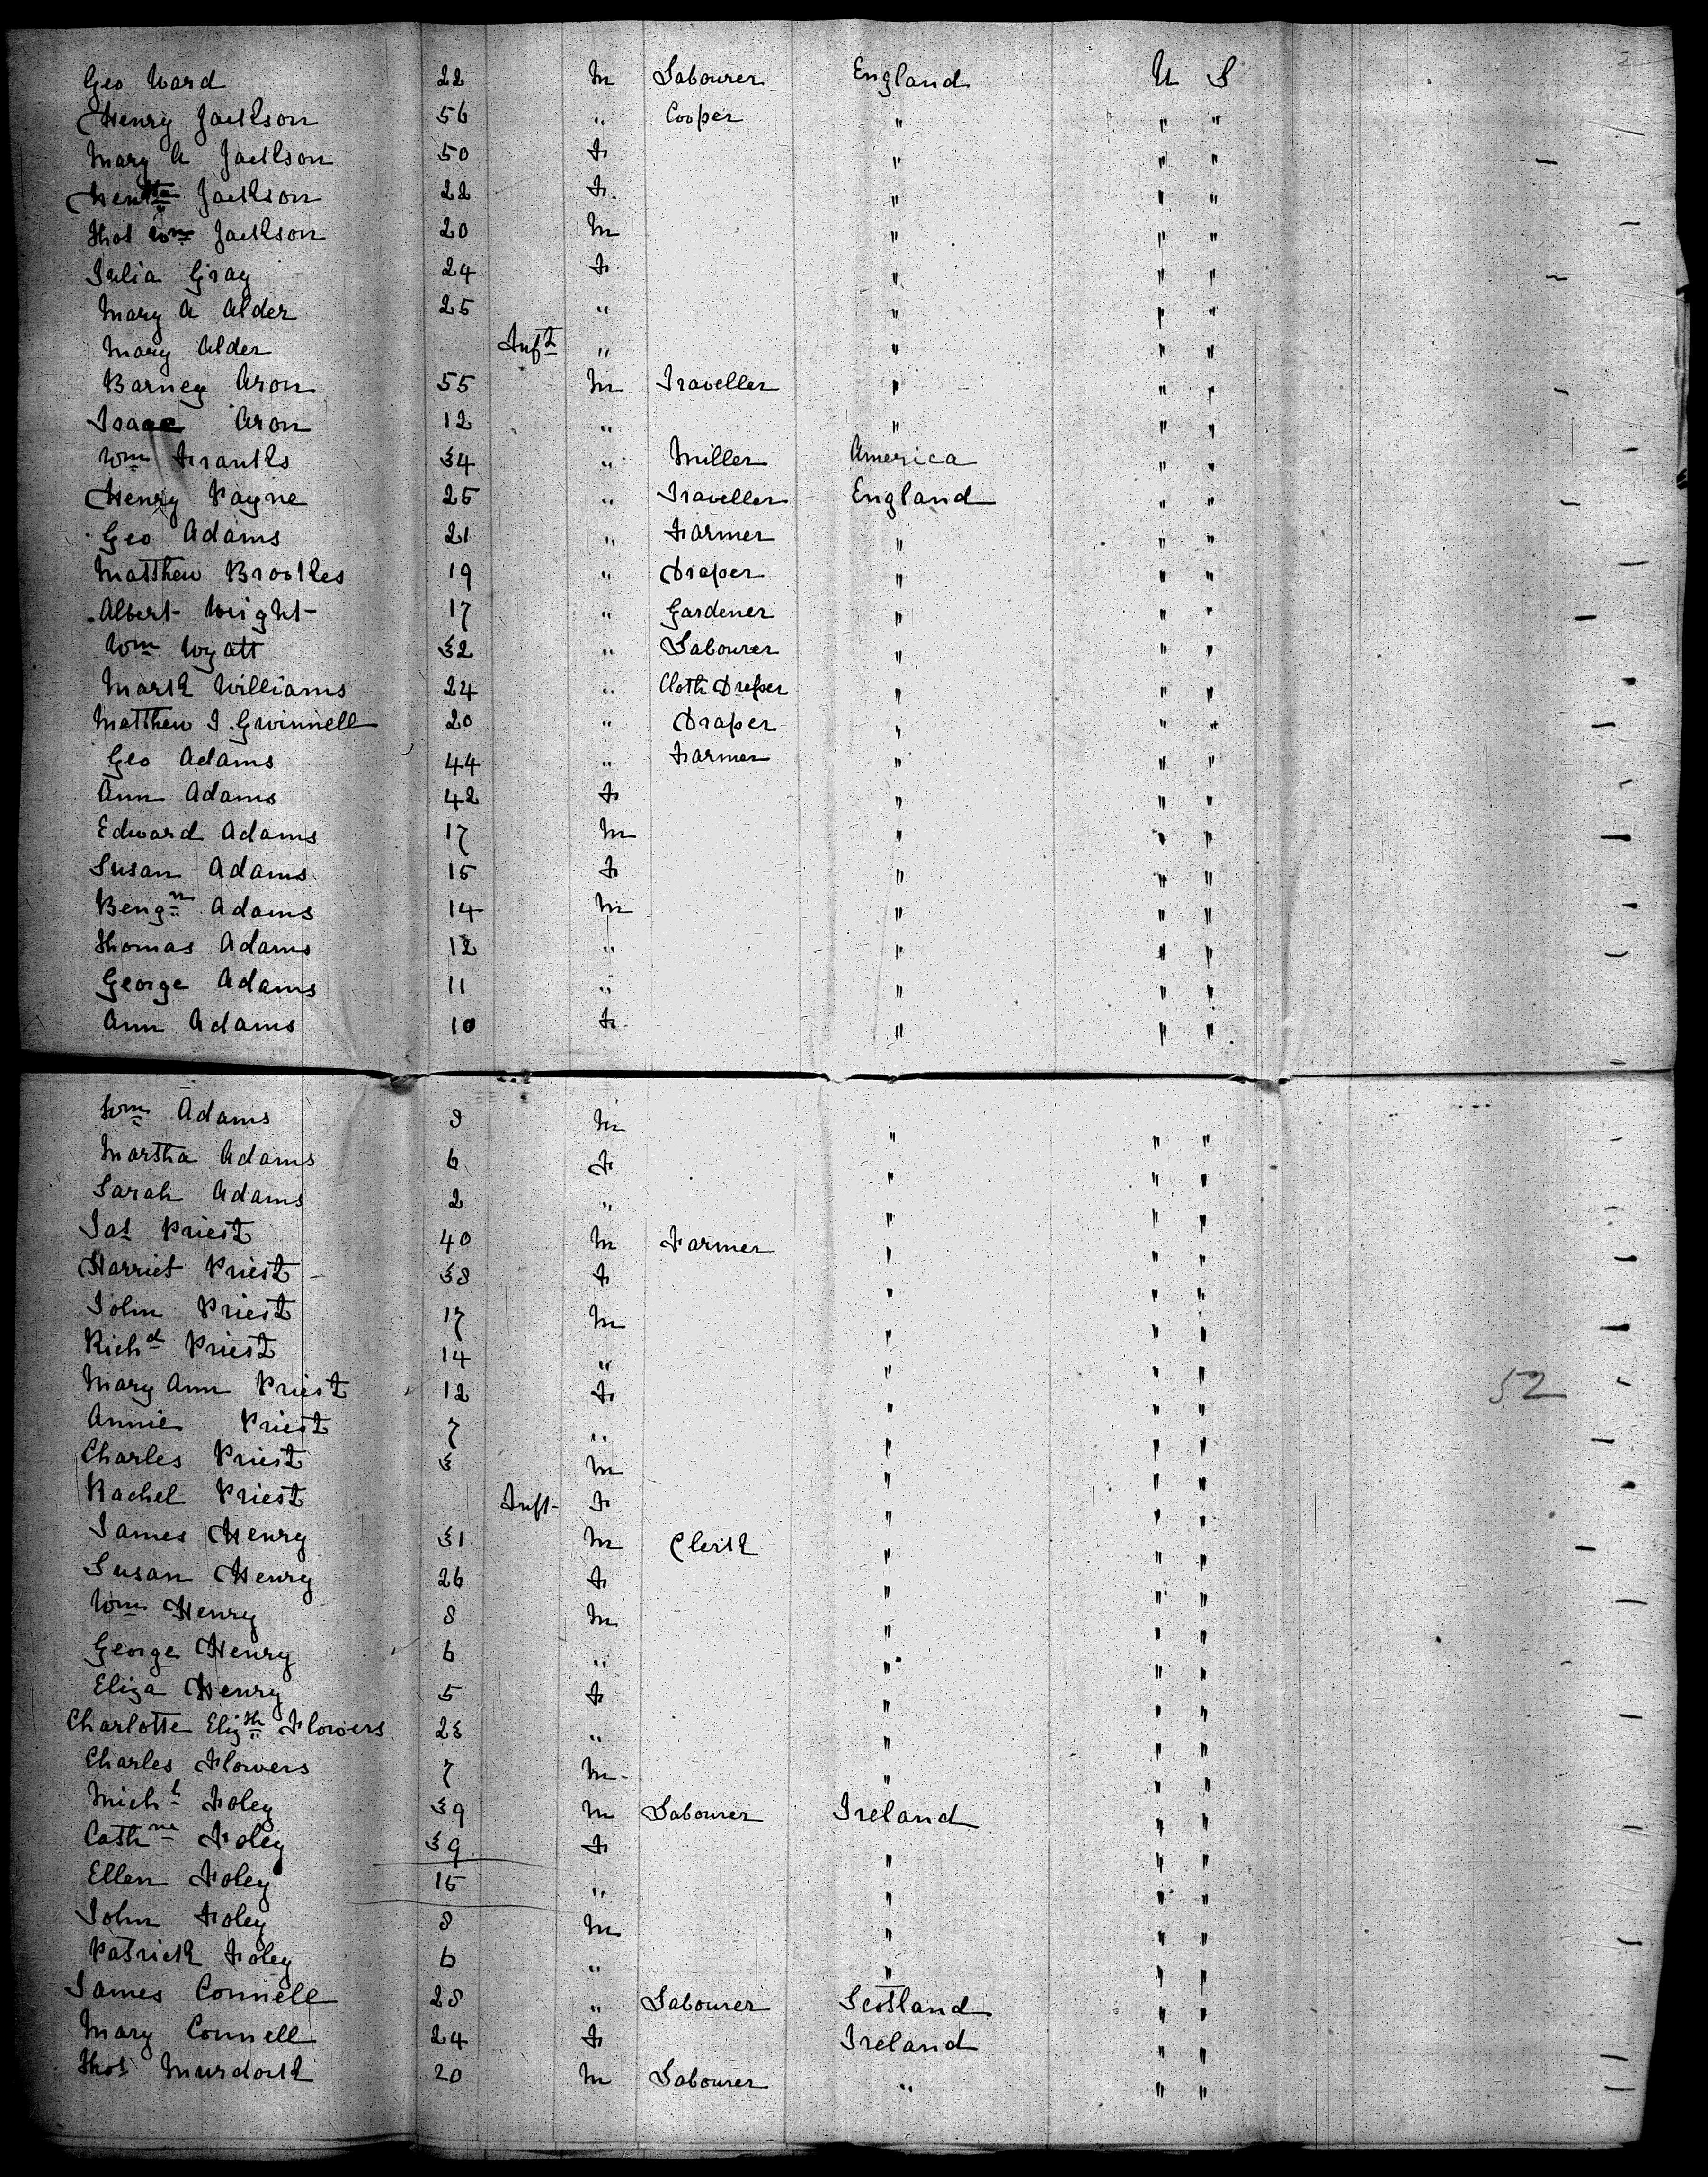 Geo Ward 22 M Labourer England U S
Henry Jackson 56 " Cooper " " "
Mary A Jackson 50 F " " "
Jackson 22 F. " " "
Thos Wm Jackson 20 M " " "
Julia Gray 24 F. " " "
Mary A Alder 25 " " " "
Mary Alder Inft " " " "
Barney Aron 55 M Traveller " " "
Isaac Aron 12 " " " "
Wm Franks 34 " Miller America " "
Henry Payne 25 " Traveller England " "
Geo Adams 21 " Farmer " " "
Matthew Brookes 19 " Draper " " "
Albert Wright 17 " Gardener " " "
Wm Wyatt 32 " Labourer " " "
Mark Williams 24 " Cloth Draper " " "
Matthew J. Gwinnell 20 " Draper " " "
Geo Adams 44 " Farmer " " "
Ann Adams 42 F " " "
Edward Adams 17 M " " "
Susan Adams 15 F " " "
Benjn Adams 14 M " " "
Thomas Adams 12 " " " "
George Adams 11 " " " "
Ann Adams 10 F. " " "
Wm Adams 8 M " " "
Martha Adams 6 F " " "
Sarah Adams 2 " " " "
Jas Priest 40 M Farmer " " "
Harriet Priest 38 F " " "
John Priest 17 M " " "
Richd Priest 14 " " " "
Mary Ann Priest 12 F " " " 52
Annie Priest 7 " " " "
Charles Priest 3 M " " "
Rachel Priest Inft F " " "
James Henry 31 M Clerk " " "
Susan Henry 26 F " " "
Wm Henry 8 M " " "
George Henry 6 " " " "
Eliza Henry 5 F " " "
Charlotte Elizth Flowers 23 " " " "
Charles Flowers 7 M " " "
Michl Foley 39 M Labourer Ireland " "
Cathne Foley 39 F " " "
Ellen Foley 15 " " " "
John Foley 8 M " " "
Patrick Foley 6 " " " "
James Connell 28 " Labourer Scotland " "
Mary Connell 24 F Ireland " "
Thos Murdock 20 M Labourer " " "